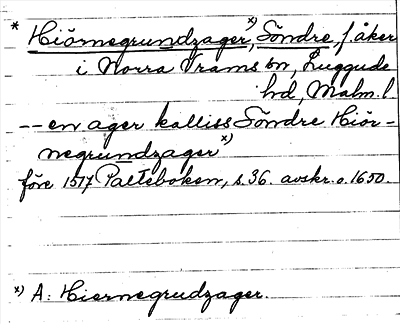 * Hiörnegrundzager, x) Söndre, f. åker
i Norra Vrams sn, Luggude
hd, Malm. l.
-- en ager kalliss Söndre Hiör-
negrundzager x)
före 1517 Palteboken, s. 36. avskr. o. 1650.
x) A: Hiernegrudzager.